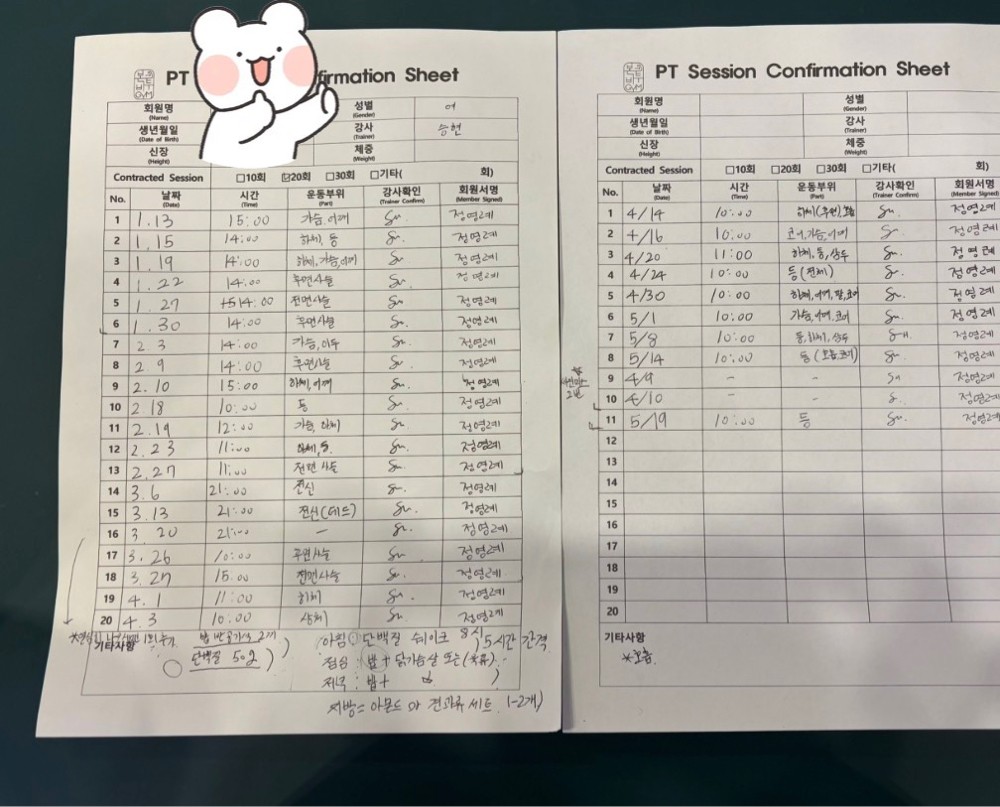 PT firmation Sheet
회원명 (Name) 성별 (Gender) 여
생년월일 (Date of Birth) 강사 (Trainer) 승현
신장 (Height) 체중 (Weight)
Contracted Session □10회 ☑20회 □30회 □기타( 회)
No. 날짜 (Date) 시간 (Time) 운동부위 (Part) 강사확인 (Trainer Confirm) 회원서명 (Member Signed)
1 1.13 15:00 가슴,어깨 정영례
2 1.15 14:00 하체, 등 정영례
3 1.19 14:00 하체,가슴,어깨 정영례
4 1.22 14:00 후면사슬 정영례
5 1.27 14:00 전면사슬 정영례
6 1.30 14:00 후면사슬 정영례
7 2.3 14:00 가슴,이두 정영례
8 2.9 14:00 후면사슬 정영례
9 2.10 15:00 하체,어깨 정영례
10 2.18 10:00 등 정영례
11 2.19 12:00 가슴 하체 정영례
12 2.23 11:00 정영례
13 2.27 11:00 전면사슬 정영례
14 3.6 21:00 전신 정영례
15 3.13 21:00 전신(데드) 정영례
16 3.20 21:00 - 정영례
17 3.26 10:00 후면사슬 정영례
18 3.27 15:00 전면사슬 정영례
19 4.1 11:00 하체 정영례
20 4.3 10:00 상체 정영례
기타사항
단백질 50g
아침: 단백질 쉐이크 8시 5시간 간격
점심: 밥 + 닭가슴살 또는
저녁: 밥+
지방= 아몬드 견과류세트 1-2개)
PT Session Confirmation Sheet
회원명 (Name) 성별 (Gender)
생년월일 (Date of Birth) 강사 (Trainer)
신장 (Height) 체중 (Weight)
Contracted Session □10회 □20회 □30회 □기타( 회)
No. 날짜 (Date) 시간 (Time) 운동부위 (Part) 강사확인 (Trainer Confirm) 회원서명 (Member Signed)
1 4/14 10:00 정영례
2 4/16 10:00 코어,가슴,어깨 정영례
3 4/20 11:00 하체, 등, 삼두 정영례
4 4/24 10:00 등(전체) 정영례
5 4/30 10:00 하체,어깨,팔,코어 정영례
6 5/1 10:00 가슴,어깨,코어 정영례
7 5/8 10:00 등,하체,삼두 정영례
8 5/14 10:00 등 정영례
9 4/9 - - 정영례
10 4/10 - - 정영례
11 5/19 10:00 등 정영례
12
13
14
15
16
17
18
19
20
기타사항